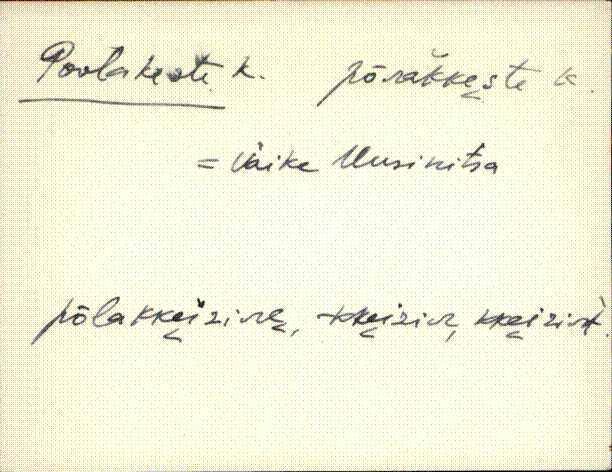 Poolakeste k. põràkkę̆ste k.
= Väike Uusinitsa
põlakkę̆izivę, -kkęizivę, kkęizivt.